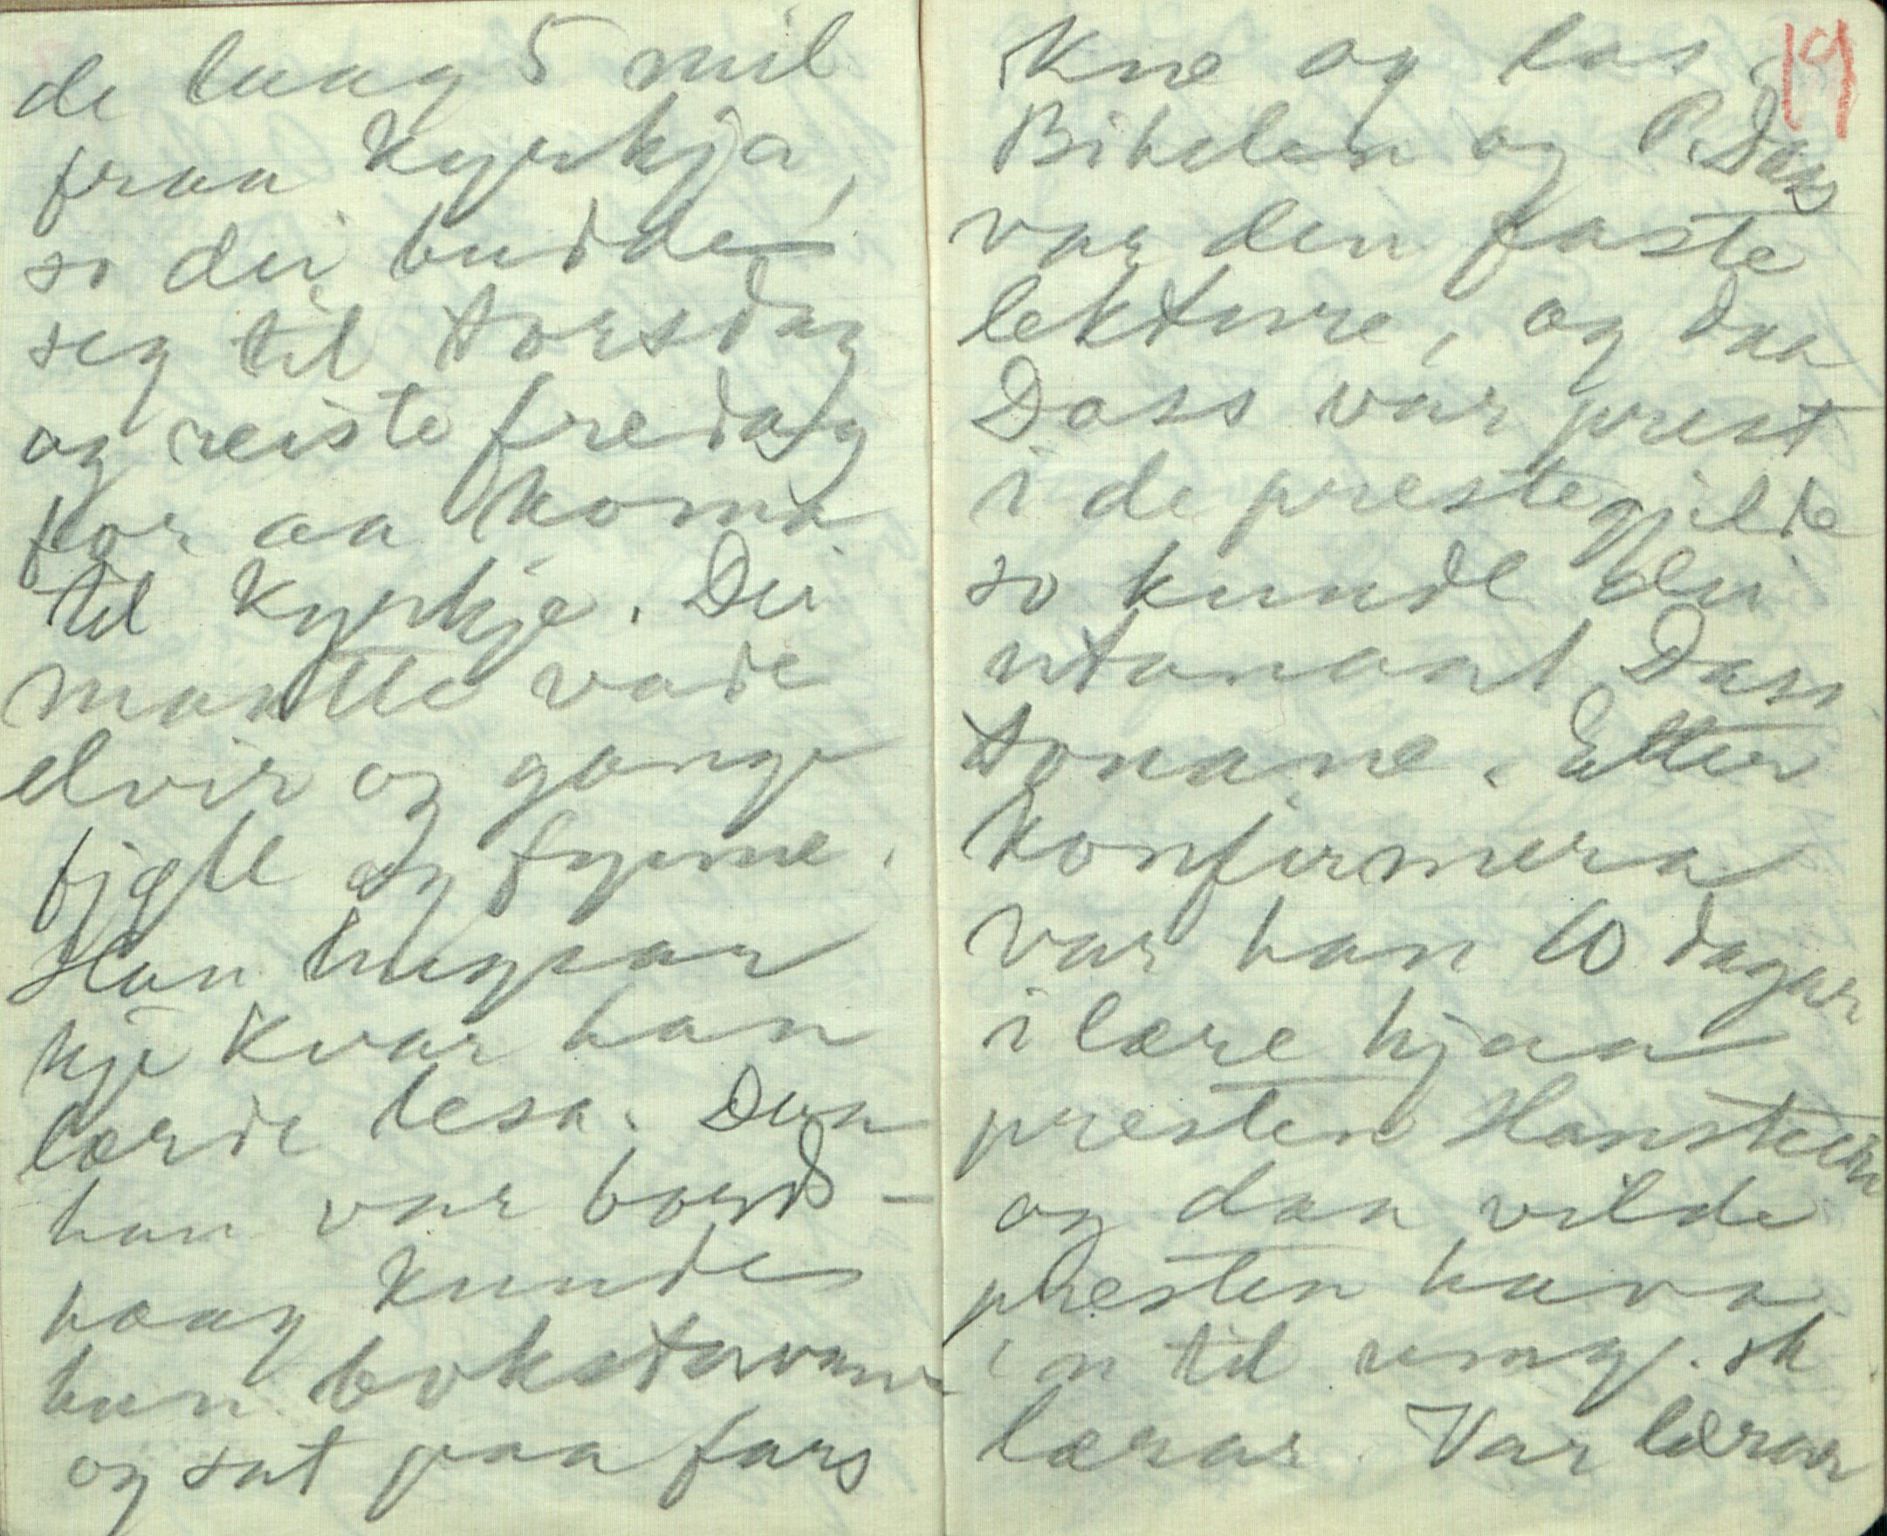 de laag 5 mil
fraa kyrkja,
so dei budde
seg til torsdag
og reiste fredag
for aa koma
til kyrkje. Dei
maatte vade
elvir og gange
fjell og
Han hugsar
kje kvar han
lærde lesa. Daa
han var bord-
haag kunde
han bokstavane
og sat paa fars
19
kne og las.
Bibelen og P. Dass
var den faste
lekture, og daa
Dass var prest
i de prestegjelde
so kunde dei
utanaat Dass
tonane. Etter
konfirmera
var han 60 dagar
i lære hjaa
presten Hansteen
og daa vilde
presten hava
in til umg. sk
lærar. Var lærar